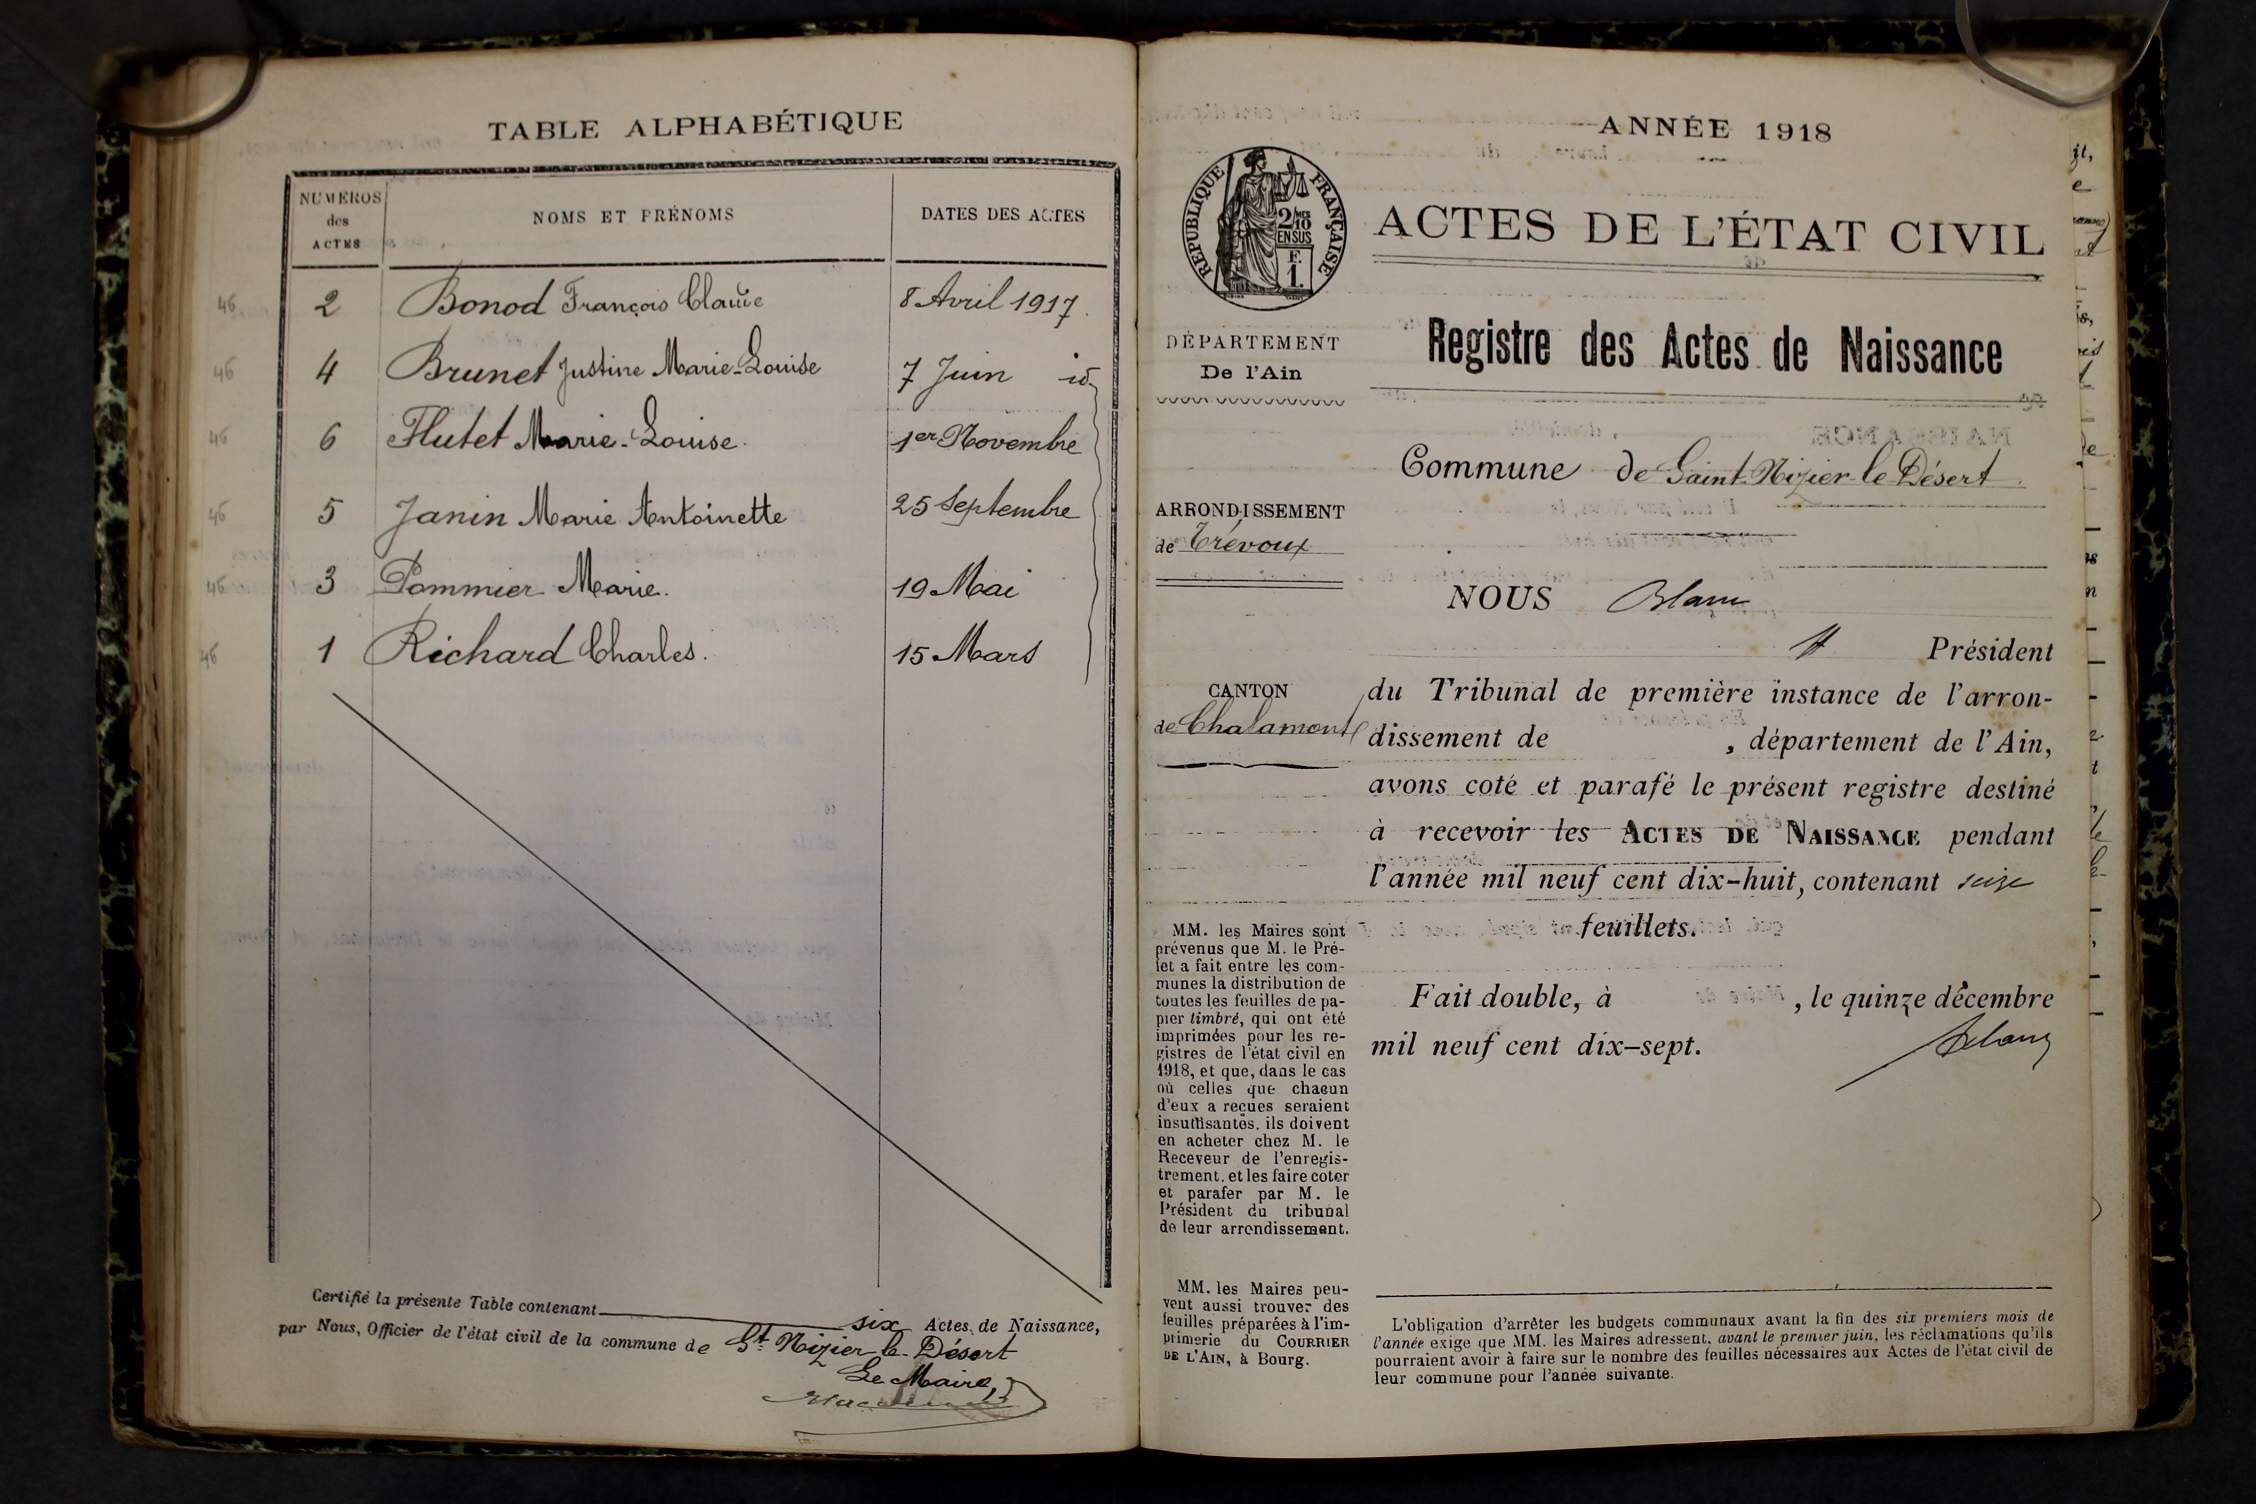 TABLE ALPHABÉTIQUE
NUMÉROS
des
ACTES
NOMS ET PRÉNOMS
DATES DES ACTES
46 2 Bonod François Claude 8 Avril 1917.
46 4 Brunet Justine Marie-Louise 7 Juin id
46 6 Flutet Marie-Louise. 1er Novembre
46 5 Janin Marie Antoinette 25 Septembre
46 3 Pommier Marie. 19 Mai
46 1 Richard Charles. 15 Mars
Certifié la présente Table contenant six Actes de Naissance,
par Nous, Officier de l'état civil de la commune de St Nizier-le-Désert
Le Maire,
ANNÉE 1918
RÉPUBLIQUE FRANÇAISE
2/10
EN SUS
F.
1.
ACTES DE L'ÉTAT CIVIL
DÉPARTEMENT
De l'Ain
Registre des Actes de Naissance
Commune de Saint-Nizier-le-Désert
ARRONDISSEMENT
de Trévoux
NOUS
Président
CANTON
de Chalamont
du Tribunal de première instance de l'arron-
dissement de , département de l'Ain,
avons coté et parafé le présent registre destiné
à recevoir les ACTES DE NAISSANCE pendant
l'année mil neuf cent dix-huit, contenant seize
feuillets.
Fait double, à , le quinze décembre
mil neuf cent dix-sept.
MM. les Maires sont
prévenus que M. le Pré-
fet a fait entre les com-
munes la distribution de
toutes les feuilles de pa-
pier timbré, qui ont été
imprimées pour les re-
gistres de l'état civil en
1918, et que, dans le cas
où celles que chacun
d'eux a reçues seraient
insuffisantes, ils doivent
en acheter chez M. le
Receveur de l'enregis-
trement, et les faire coter
et parafer par M. le
Président du tribunal
de leur arrondissement.
MM. les Maires peu-
vent aussi trouver des
feuilles préparées à l'im-
primerie du COURRIER
DE L'AIN, à Bourg.
L'obligation d'arrêter les budgets communaux avant la fin des six premiers mois de
l'année exige que MM. les Maires adressent, avant le premier juin, les réclamations qu'ils
pourraient avoir à faire sur le nombre des feuilles nécessaires aux Actes de l'état civil de
leur commune pour l'année suivante.